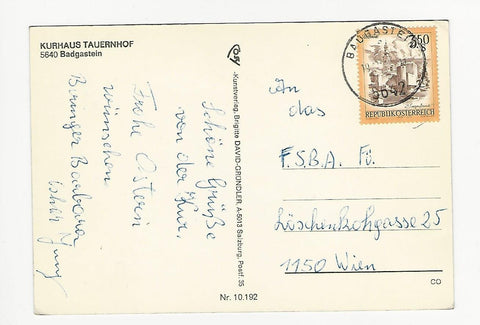 KURHAUS TAUERNHOF
5640 Badgastein
Schöne Grüße
von der Kur.
Frohe Ostern
wünschen
Barbara
Kunstverlag, Brigitte DAVID-GRÜNDLER, A-5013 Salzburg, Postf. 35
Nr. 10.192
BADGASTEIN
5642
3.50
REPUBLIK ÖSTERREICH
An
das
F.S.B.A. Fü.
Löschenkohlgasse 25
1150 Wien
CD